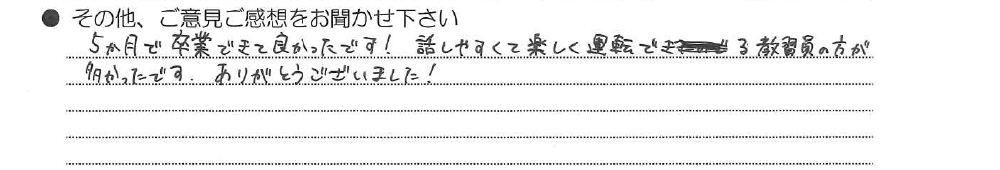 ● その他、ご意見ご感想をお聞かせ下さい
5か月で卒業できて良かったです! 話しやすくて楽しく運転できる教習員の方が
多かったです. ありがとうございました!